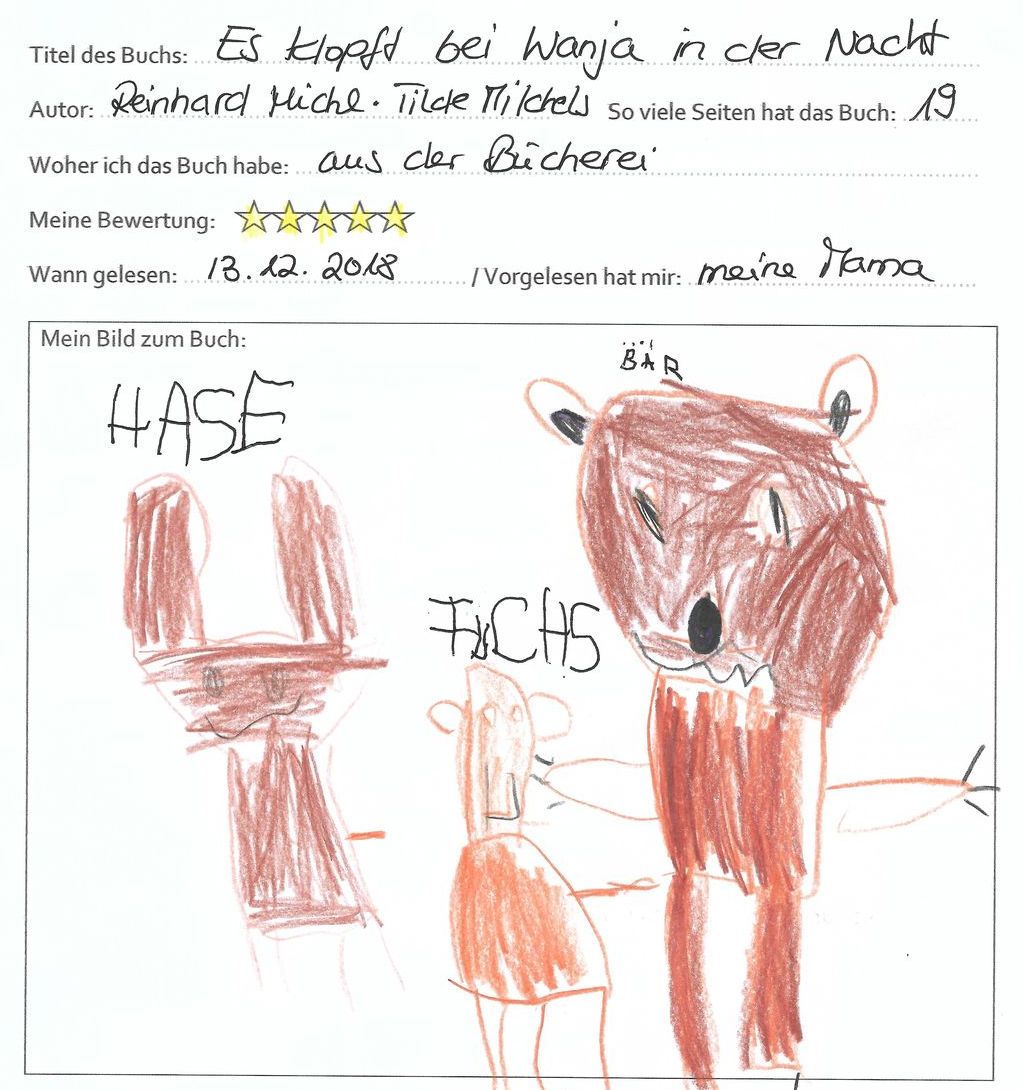 Titel des Buchs: Es klopft bei Wanja in der Nacht
Autor: Reinhard Michl. Tilde Michels So viele Seiten hat das Buch: 19
Woher ich das Buch habe: aus der Bücherei
Meine Bewertung:
Wann gelesen: 13.12.2018 / Vorgelesen hat mir: meine Mama
Mein Bild zum Buch:
BÄR
HASE
FUCHS